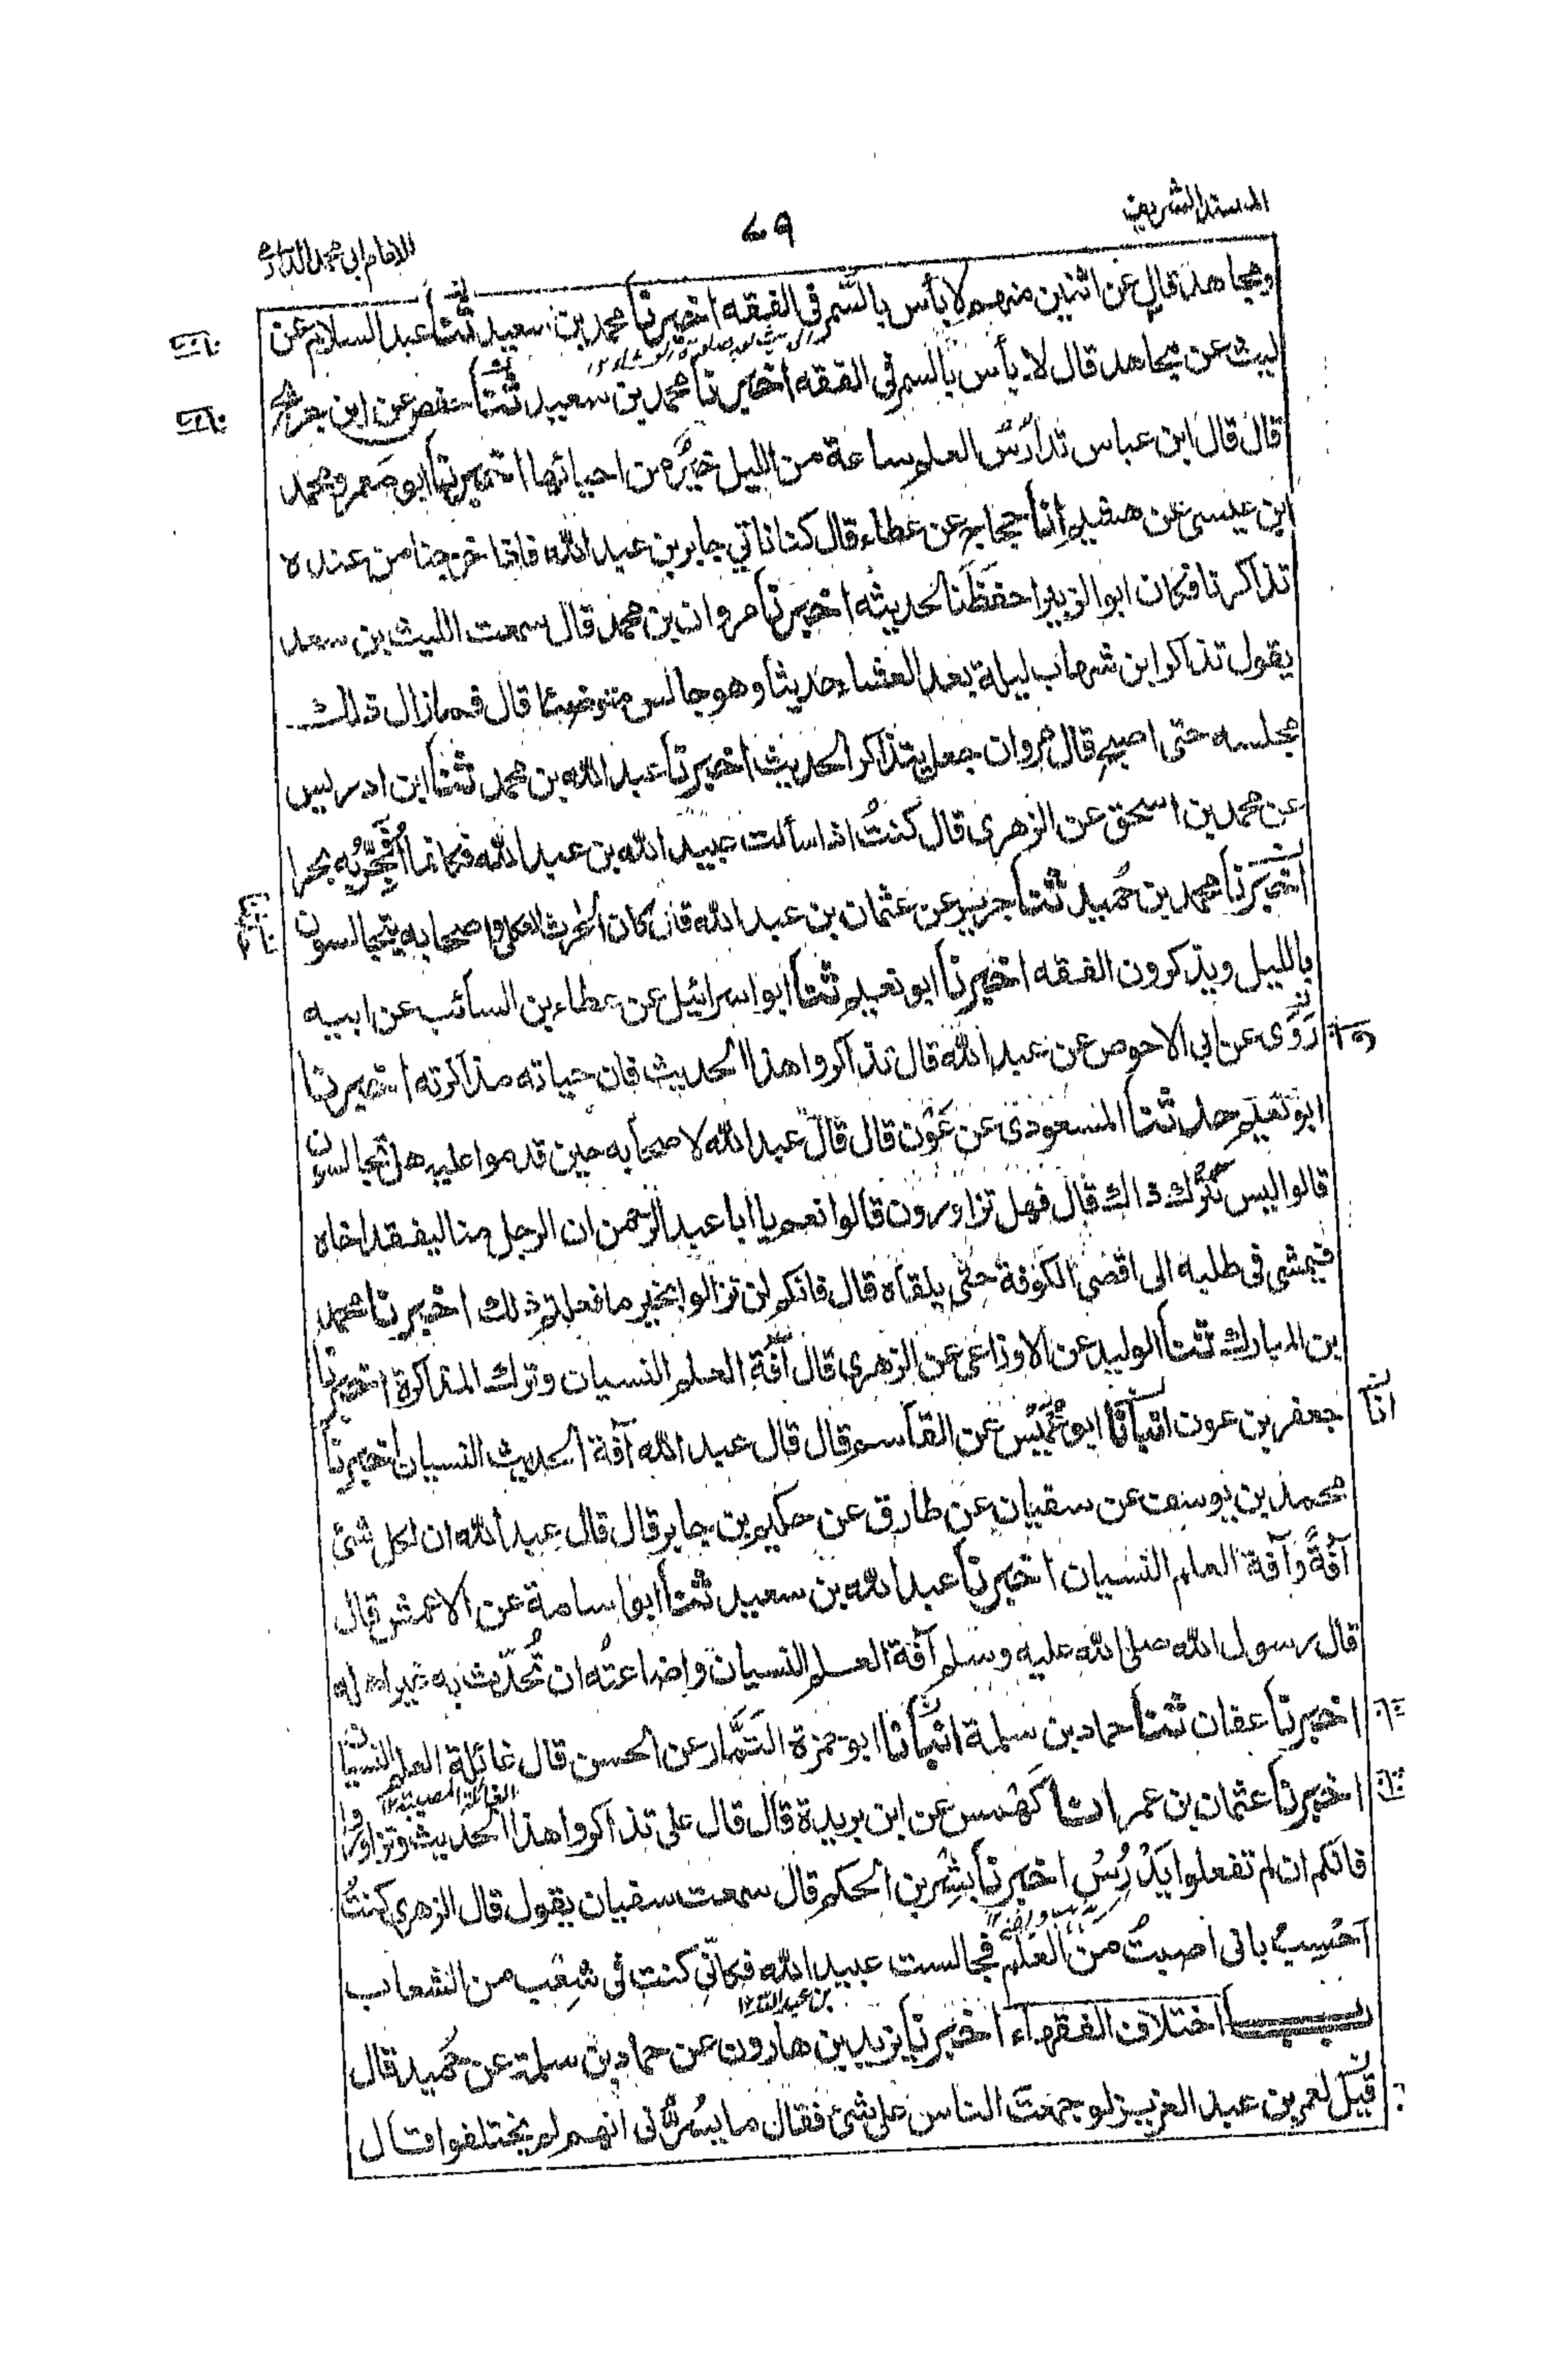 المسند الشريف
٧٩
الامام ابي محمد الدارمي
ومجاهد قال عن اثنين منهم لا بأس بالسَّمر في الفقه اخبرنا محمد بن سعيد ثنا عبد السلام عن
ليث عن مجاهد قال لا بأس بالسمر في الفقه اخبرنا محمد بن سعيد ثنا حفص عن ابن جريج
قال قال ابن عباس تدارُسُ العلم ساعة من الليل خيرٌ من احيائها اخبرنا ابو معمر ومحمد
ابن عيسى عن هشيم انا حجاج عن عطاء قال كنا ناتي جابر بن عبد الله فاذا خرجنا من عنده
تذاكرنا فكان ابو الزبير احفَظَنا لحديثه اخبرنا مروان بن محمد قال سمعت الليث بن سعد
يقول تذاكر ابن شهاب ليلة بعد العشاء حديثا وهو جالس متوضئا قال فما زال ذلك
مجلسه حتى اصبح قال مروان جعل يتذاكر الحديث اخبرنا عبد الله بن محمد ثنا ابن ادريس
عن محمد بن اسحق عن الزهرى قال كنتُ اذا سألت عبيد الله بن عبد الله فكانما اُفَجِّرُ به بحرا
اخبرنا محمد بن حُميد ثنا جرير عن عثمان بن عبد الله قال كان الحرث العكلي واصحابه يتجالسون
بالليل ويذكرون الفقه اخبرنا ابو نعيم ثنا ابو اسرائيل عن عطاء بن السائب عن ابيه
رَوَى عن ابي الاحوص عن عبد الله قال تذاكروا هذا الحديث فان حياته مذاكرته اخبرنا
ابو نعيم حدثنا المسعودى عن عَوْن قال قال عبد الله لاصحابه حين قدموا عليه هل تجالسون
قالوا ليس نَتْرُك ذاك قال فهل تزاورون قالوا نعم يا ابا عبد الرحمن ان الرجل منا ليفقد اخاه
فيمشي في طلبه الى اقصى الكوفة حتى يلقاه قال فانكم لن تزالوا بخير ما فعلتم ذلك اخبرنا محمد
بن المبارك ثنا الوليد عن الاوزاعي عن الزهرى قال آفة العلم النسيان وترك المذاكرة اخبرنا
جعفر بن عون انبأنا ابو عُمَيْس عن القاسم قال قال عبد الله آفة الحديث النسيان اخبرنا
انا
محمد بن يوسف عن سفيان عن طارق عن حكيم بن جابر قال قال عبد الله ان لكل شئ
آفةً وآفة العلم النسيان اخبرنا عبد الله بن سعيد ثنا ابو اسامة عن الاعمش قال
قال رسول الله صلى الله عليه وسلم آفة العلم النسيان واضاعتُه ان تُحدّث به غير اهله
اخبرنا عفان ثنا حماد بن سلمة انبأنا ابو حمزة التَّمَّار عن الحسن قال غائلة العلم النسيان
الغائلة المصيبة ١٢
اخبرنا عثمان بن عمر انا كَهْمس عن ابن بريدة قال قال على تذاكروا هذا الحديث وتزاوروا
فانكم ان لم تفعلوا يَدْرُسُ اخبرنا بِشْر بن الحكم قال سمعت سفيان يقول قال الزهرى كنتُ
اَحْسِبُ باني اصبتُ من العلم فجالست عبيد الله فكأنّي كنت في شِعْب من الشعاب
بن عبد الله ١٢
باب اختلاف الفقهاء اخبرنا يزيد بن هارون عن حماد بن سلمة عن حُميد قال
قيل لعمر بن عبد العزيز لو جمعتَ الناس على شئ فقال ما يسُرّني انهم لم يختلفوا قال